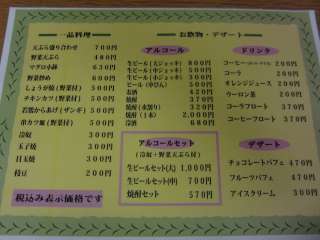 一品料理
天ぷら盛り合わせ 700円
野菜天ぷら 480円
マグロ小鉢 630円
野菜炒め
しょうが焼(野菜付)
チキンカツ(野菜付)
若鶏からあげ(ザンギ)
串カツ風(野菜付)
冷奴
玉子焼
目玉焼
枝豆 200円
税込み表示価格です
お飲物・デザート
アルコール
生ビール(大ジョッキ) 800円
生ビール(中ジョッキ) 500円
ビール(中びん) 550円
お酒 370円
焼酎
焼酎(水割り) 320円
焼酎(1本) 2,000円
冷酒 680円
アルコールセット
(冷奴・野菜天ぷら付)
生ビールセット(大) 1,000円
生ビールセット(中) 700円
焼酎セット 570円
ドリンク
コーヒー
コーラ
オレンジジュース 200円
ウーロン茶 200円
コーラフロート 370円
コーヒーフロート 370円
デザート
チョコレートパフェ 470円
フルーツパフェ 470円
アイスクリーム 300円